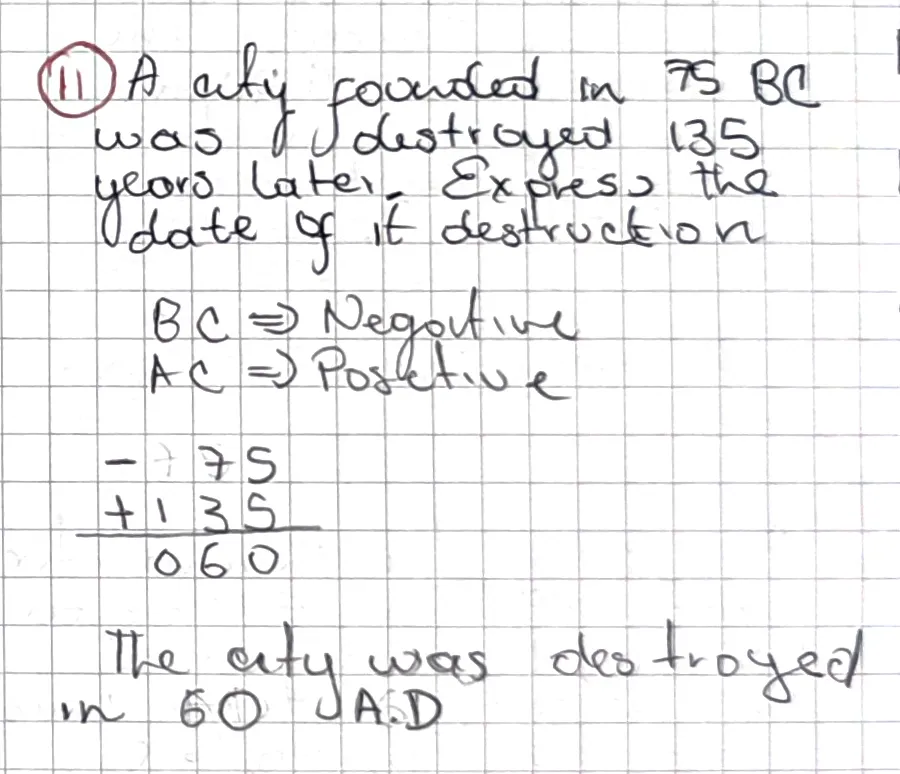 11 A city founded in 75 BC
was destroyed 135
years later. Express the
date of it destruction
BC ⇒ Negative
AC ⇒ Positive
- 75
+135
060
The city was destroyed
in 60 A.D